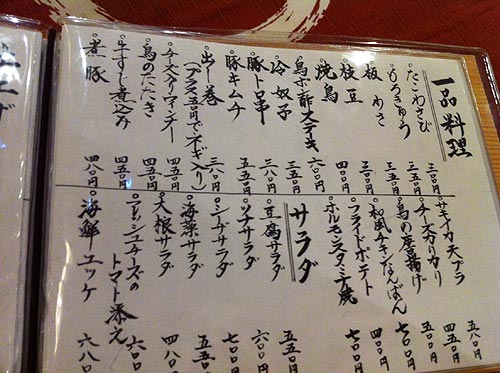 一品料理
たこわさび 三五〇円
もろきゅう 三五〇円
板わさ 三〇〇円
枝豆 三〇〇円
焼鳥 四〇〇円
鳥ポン酢ステーキ 六〇〇円
冷奴子 三五〇円
豚トロ串
豚キムチ 五五〇円
出し巻 三八〇円
(プラス五〇円でネギ入り)
チーズ入りウィンナー 四五〇円
鳥のたたき 四五〇円
牛すじ煮込み 四五〇円
煮豚 四八〇円
サキイカ天プラ 五八〇円
チーズカリカリ 四五〇円
鳥の唐揚げ 五〇〇円
和風チキンなんばん 七〇〇円
フライドポテト 四〇〇円
ホルモンスタミナ焼 七〇〇円
サラダ
豆腐サラダ 五五〇円
ツナサラダ 六〇〇円
シーザーサラダ 七〇〇円
海藻サラダ 五五〇円
大根サラダ 四八〇円
フレッシュチーズの
トマト添え 六〇〇
海鮮ユッケ 六八〇